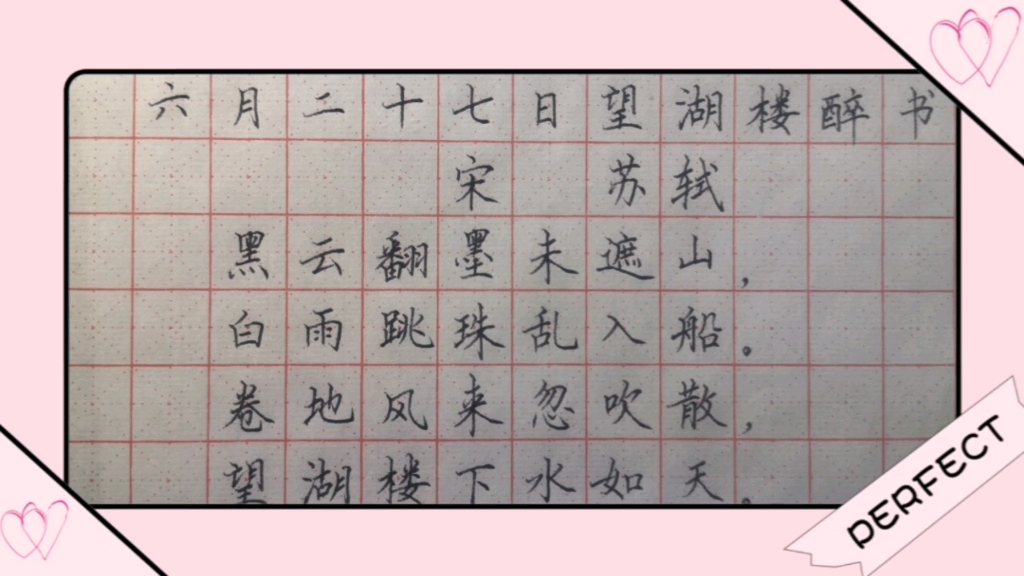 六月二十七日望湖楼醉书
宋 苏轼
黑云翻墨未遮山，
白雨跳珠乱入船。
卷地风来忽吹散，
望湖楼下水如天。
PERFECT